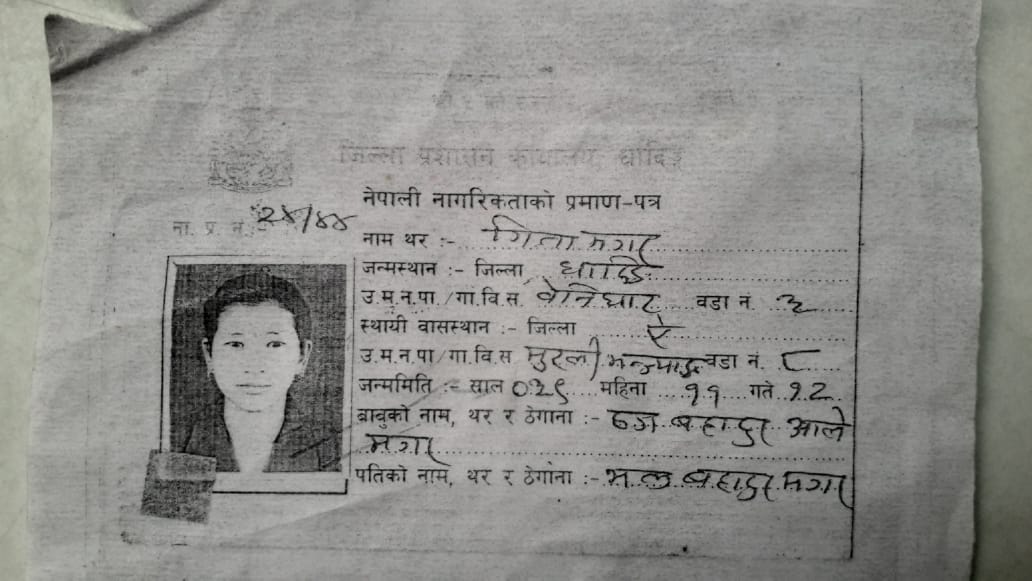 जिल्ला प्रशासन कार्यालय, धादिङ्ग
नेपाली नागरिकताको प्रमाण-पत्र
ना. प्र. नं.
नाम थर :- गिता मगर
जन्मस्थान :- जिल्ला धादिङ
उ.म.न.पा./गा.वि.स. बेनिघाट वडा नं. ३
स्थायी वासस्थान :- जिल्ला ऐ
उ.म.न.पा/गा.वि.स मुरली भन्ज्याङ वडा नं. ८
जन्ममिति :- साल ०२९ महिना ११ गते १२
बाबुको नाम, थर र ठेगाना :- बहादुर आले
मगर
पतिको नाम, थर र ठेगाना :- बहादुर मगर